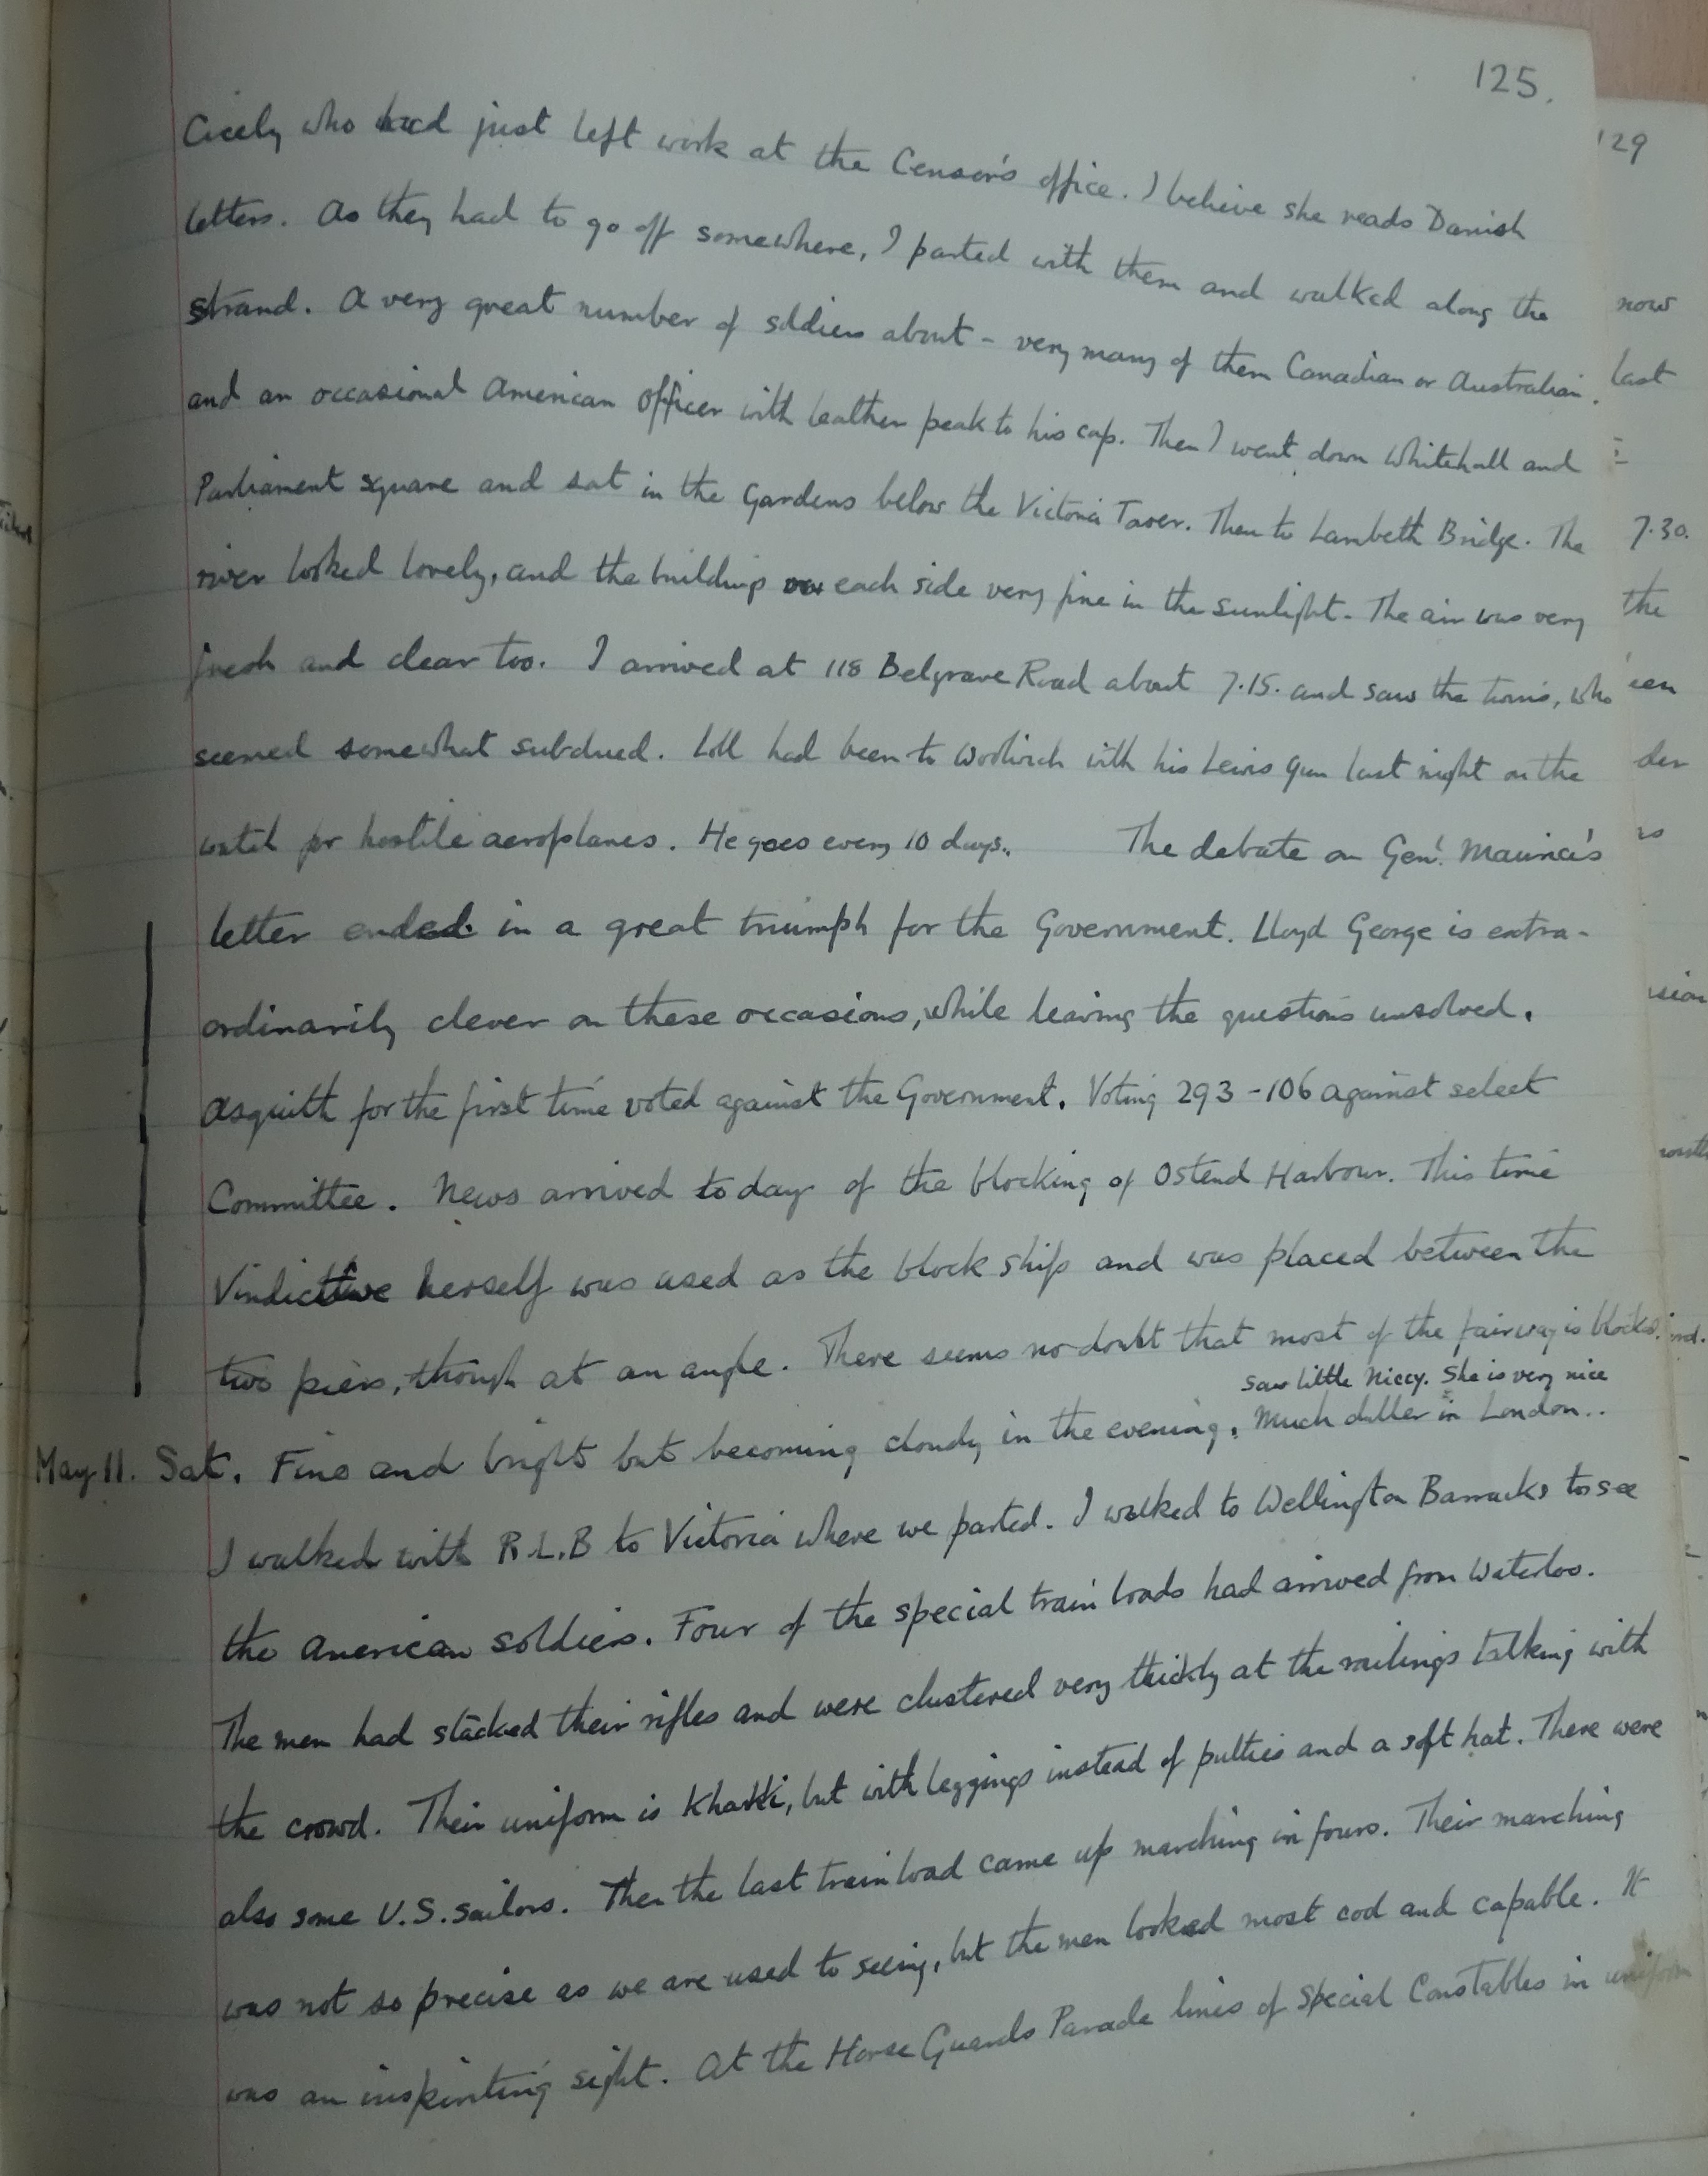 125.
Cicely who had just left work at the Censor's office. I believe she reads Danish
letters. As they had to go off somewhere, I parted with them and walked along the
Strand. A very great number of soldiers about - very many of them Canadian or Australian,
and an occasional American Officer with leather peak to his cap. Then I went down Whitehall and
Parliament Square and sat in the Gardens below the Victoria Tower. Then to Lambeth Bridge. The
river looked lovely, and the buildings on each side very fine in the sunlight. The air was very
fresh and clear too. I arrived at 118 Belgrave Road about 7.15. and saw the twins, who
seemed somewhat subdued. Loll had been to Woolwich with his Lewis Gun last night on the
watch for hostile aeroplanes. He goes every 10 days.. The debate on Genl. Maurice's
letter ended in a great triumph for the Government. Lloyd George is extra-
ordinarily clever on these occasions, while leaving the questions unsolved.
Asquith for the first time voted against the Government. Voting 293 - 106 against select
Committee. News arrived today of the blocking of Ostend Harbour. This time
Vindictive herself was used as the block ship and was placed between the
two piers, though at an angle. There seems no doubt that most of the fairway is blocked.
Saw little Niccy. She is very nice
May 11. Sat. Fine and bright but becoming cloudy in the evening. Much duller in London..
I walked with R.L.B to Victoria where we parted. I walked to Wellington Barracks to see
the American soldiers. Four of the special train loads had arrived from Waterloo.
The men had stacked their rifles and were clustered very thickly at the railings talking with
the crowd. Their uniform is Khakki, but with leggings instead of putties and a soft hat. There were
also some U.S. sailors. Then the last train load came up marching in fours. Their marching
was not so precise as we are used to seeing, but the men looked most cool and capable. It
was an inspiriting sight. At the Horse Guards Parade lines of Special Constables in uniform
129
now
last
7.30.
the
een
der